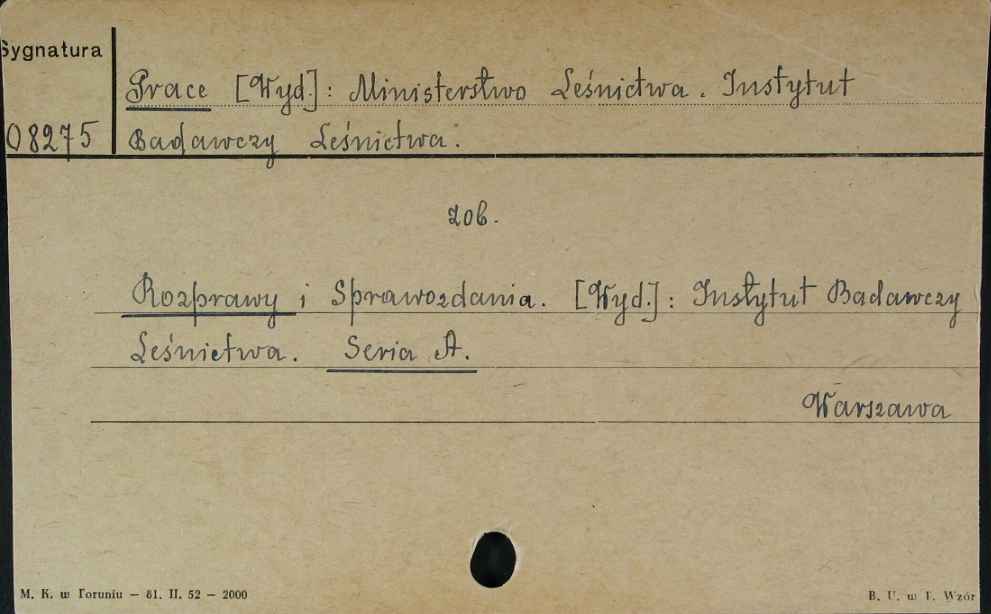 Sygnatura
Prace [Wyd.]: Ministerstwo Leśnictwa. Instytut
08275 Badawczy Leśnictwa.
zob.
Rozprawy i Sprawozdania. [Wyd.]: Instytut Badawczy
Leśnictwa. Seria A.
Warszawa
M. K. w Toruniu — 61. II. 52 — 2000 B. U. w T. Wzór